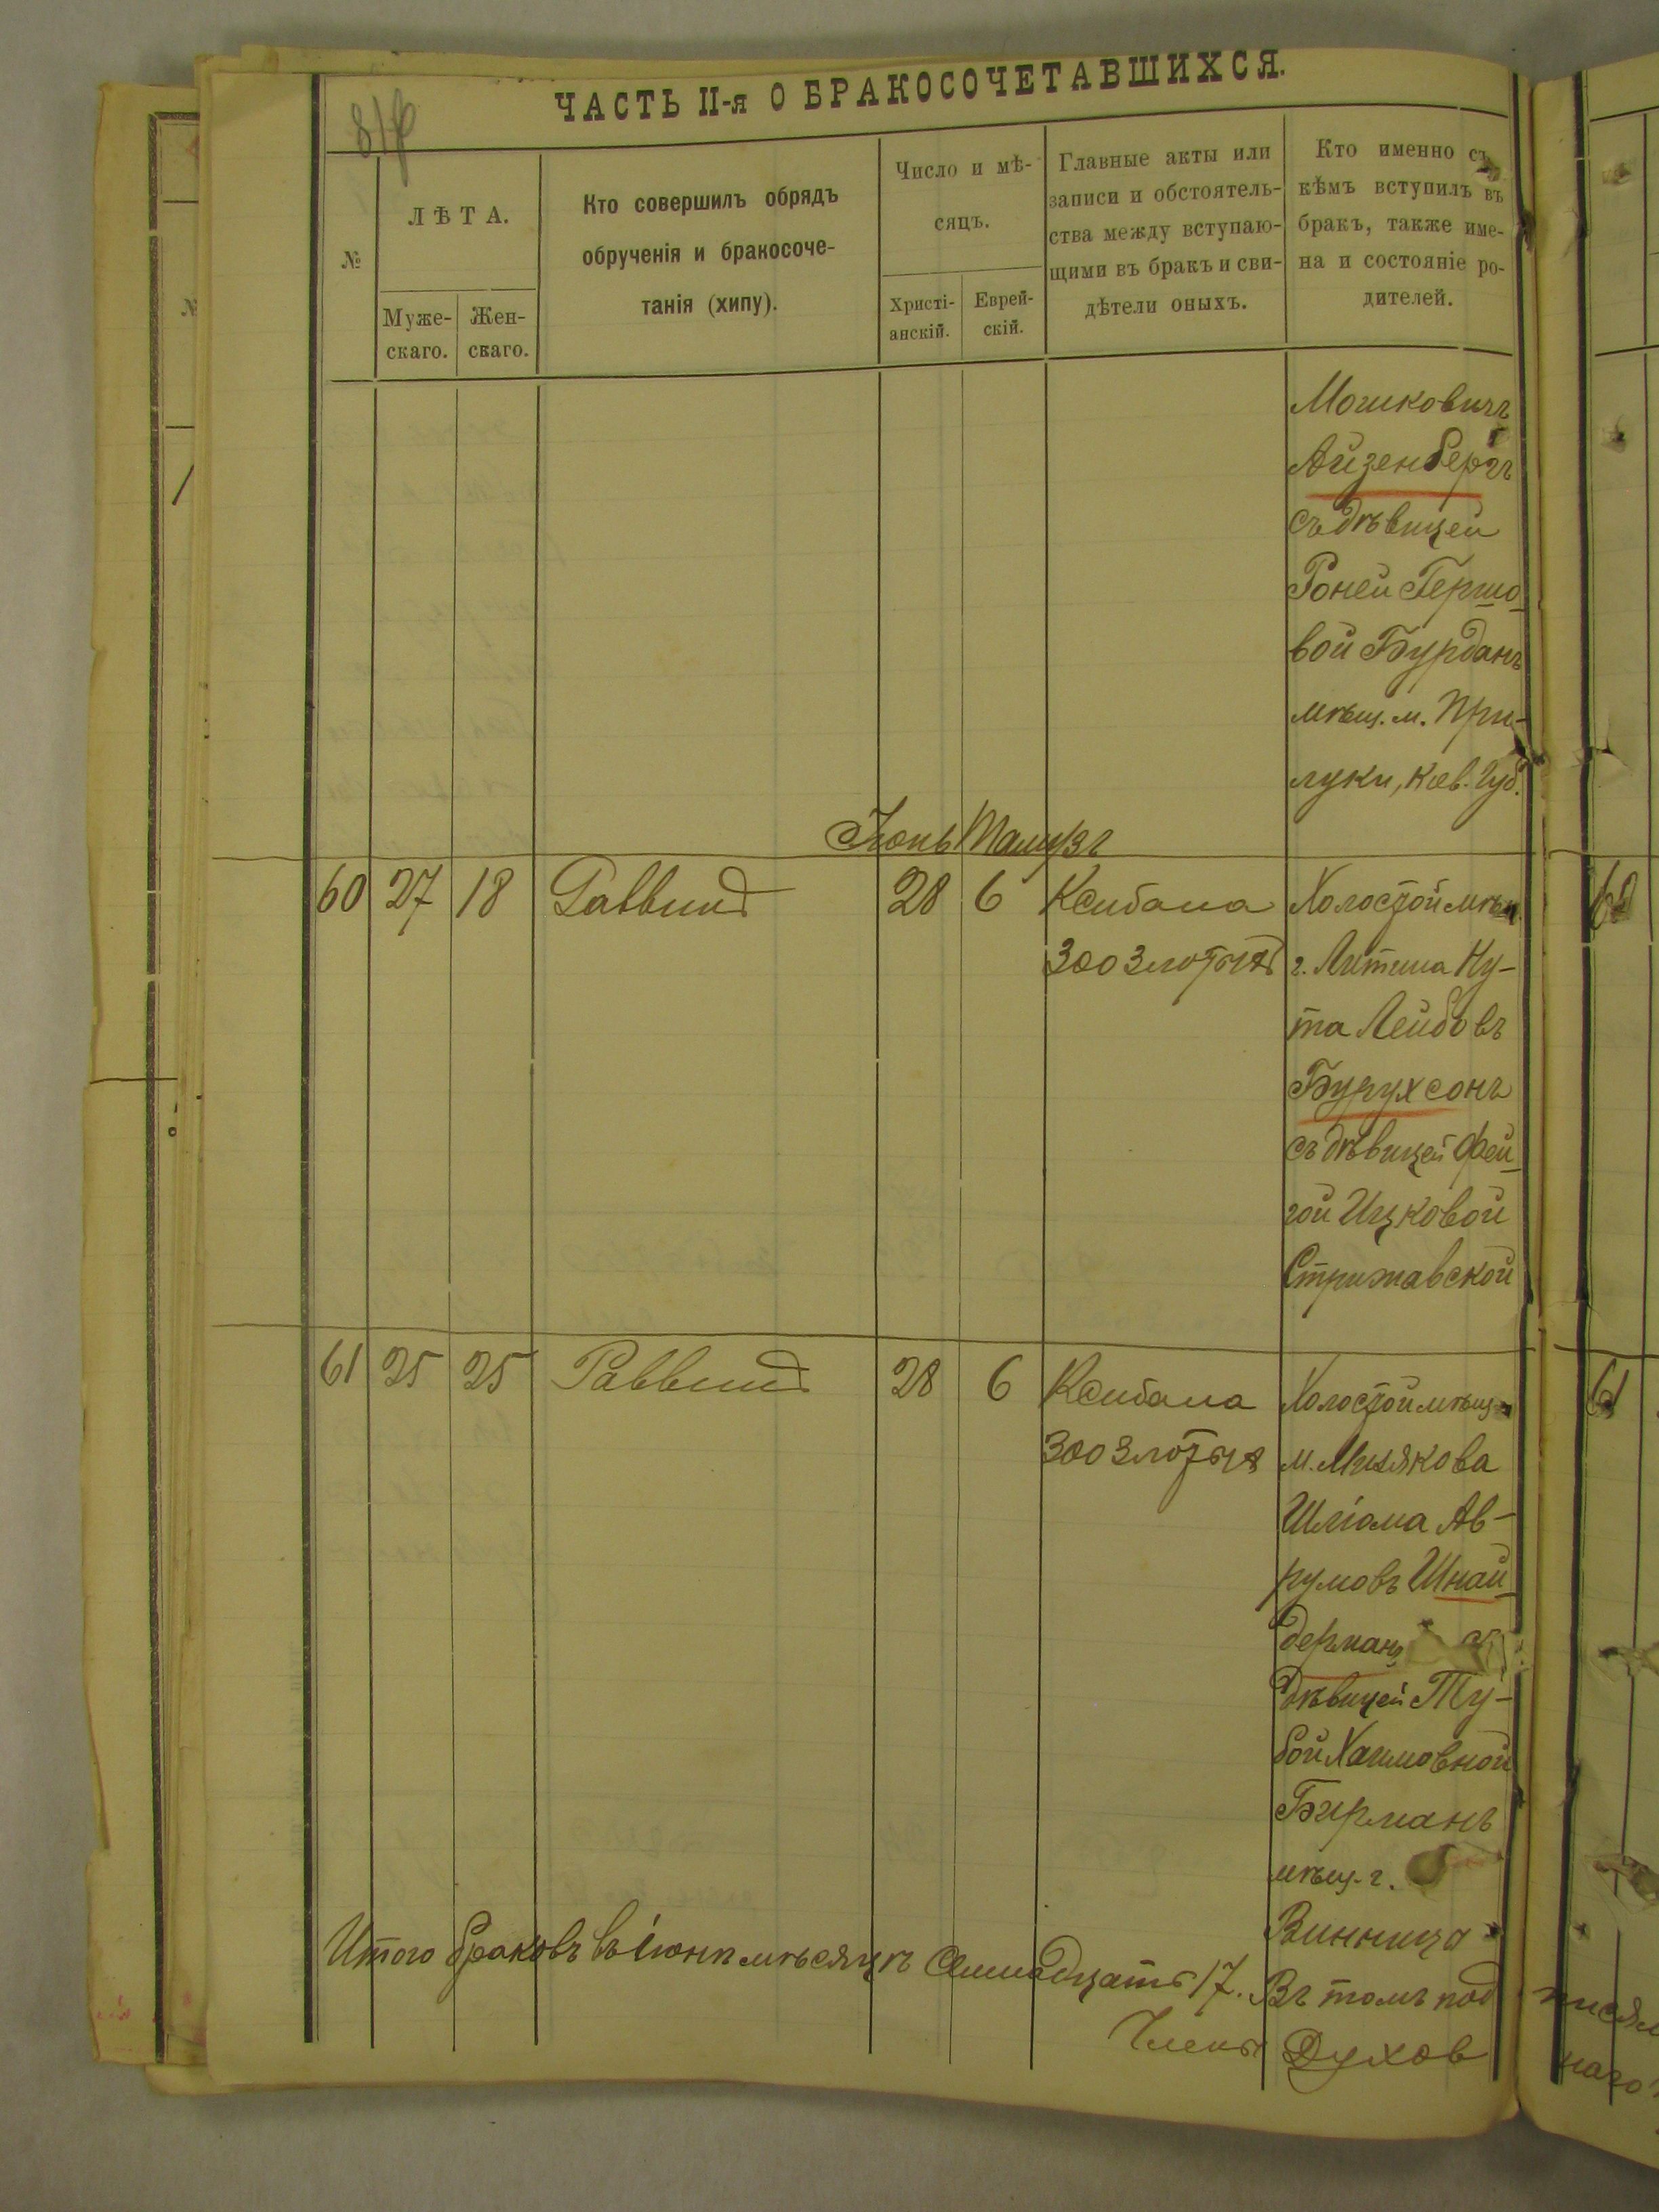 ЧАСТЬ II-я О БРАКОСОЧЕТАВШИХСЯ.
№
ЛѢТА.
Муже-
скаго.
Жен-
скаго.
Кто совершилъ обрядъ
обрученія и бракосоче-
танія (хипу).
Число и мѣ-
сяцъ.
Христі-
анскій.
Еврей-
скій.
Главные акты или
записи и обстоятель-
ства между вступаю-
щими въ бракъ и сви-
дѣтели оныхъ.
Кто именно съ
кѣмъ вступилъ въ
бракъ, также име-
на и состояніе ро-
дителей.
Мошковичъ
Айзенбергъ
съ дѣвицей
Роней Гершо-
вой Бурданъ
мѣщ. м. При-
луки, Кіев. губ.
Іюнь Тамузъ
60 27 18 Раввинъ 28 6 Ксибата Холостой мѣщ.
300 злотыхъ г. Литина Ну-
та Лейбовъ
Бурухсонъ
съ дѣвицей Фей-
гой Ицковой
Стрижавской
61 25 25 Раввинъ 28 6 Ксибата Холостой мѣщ.
300 злотыхъ м. Мизякова
Шліома Ав-
румовъ Шнай-
дерманъ съ
дѣвицей Ту-
бой Хаимовной
Бирманъ
мѣщ. г.
Винница
Итого браковъ въ іюнѣ мѣсяцѣ семнадцать 17. Въ томъ под
Члены Духов
60
61
писям
наго